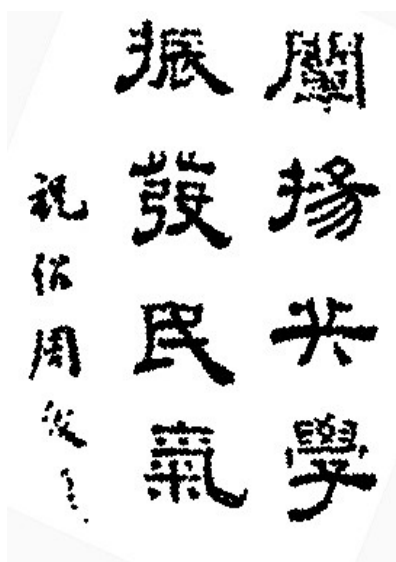 闡揚學
振發民氣
祝紹周